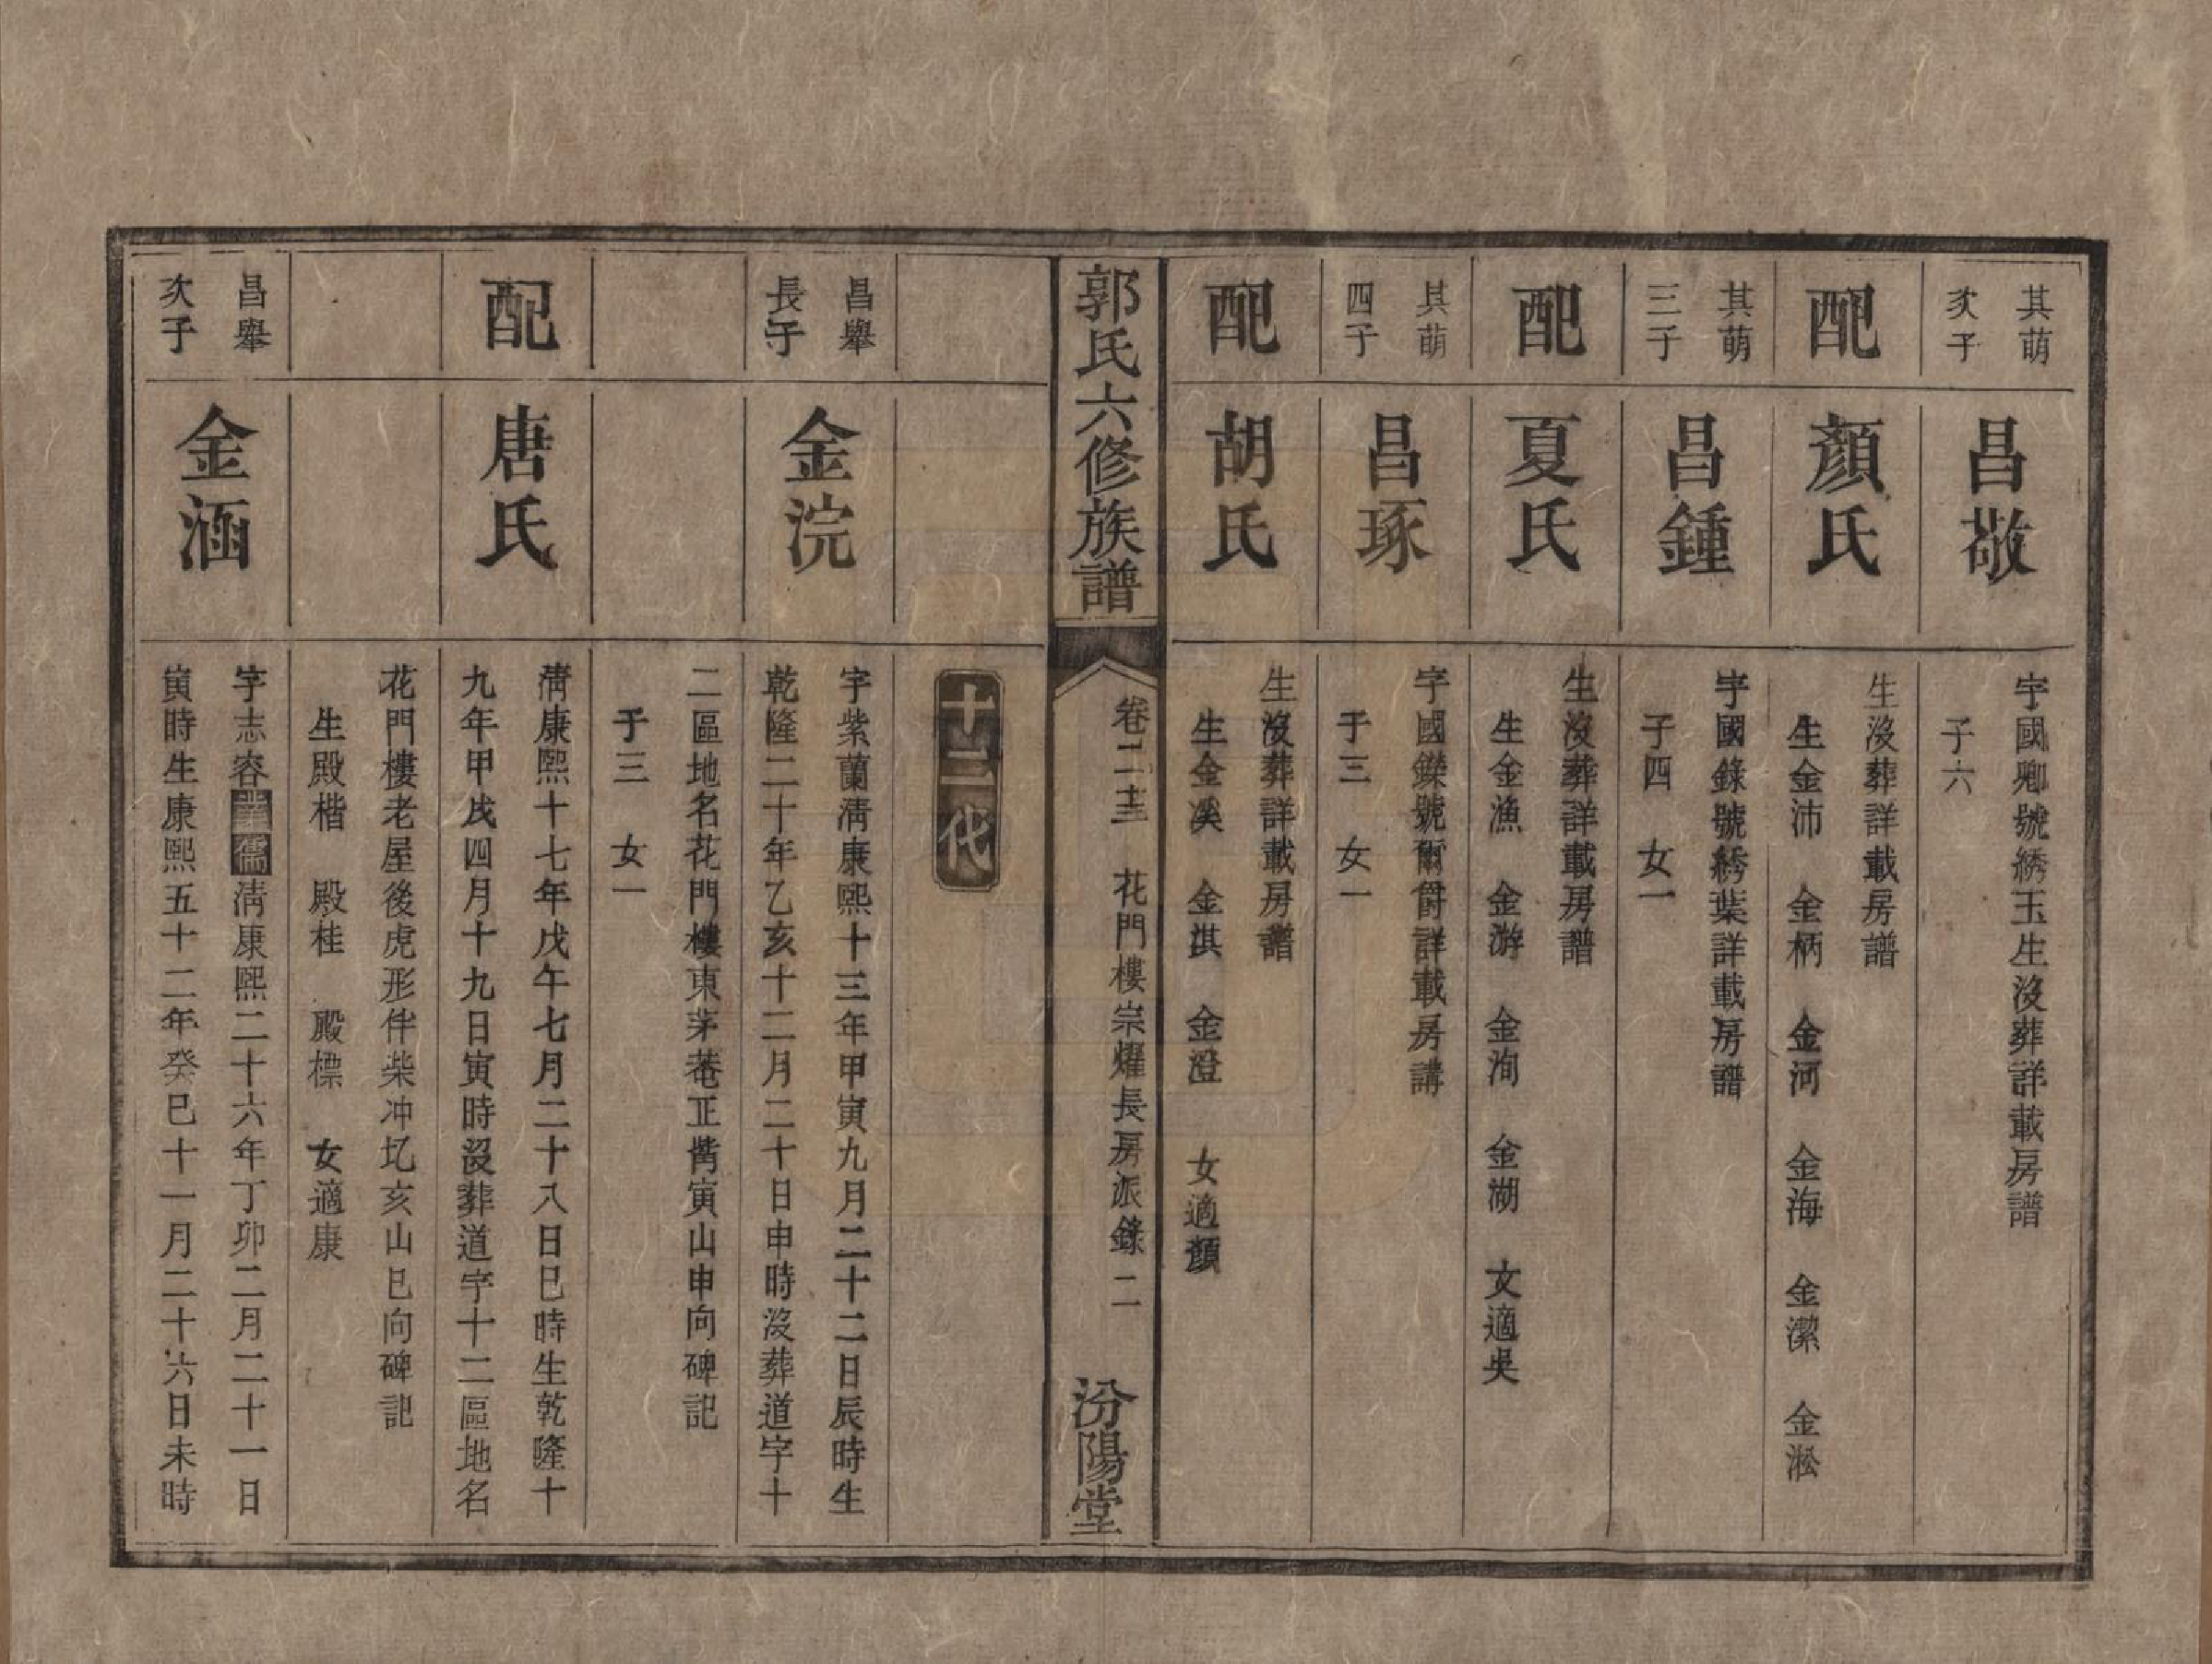 其萌
次子
昌敬
字國卿號綉玉生沒葬詳載房譜
子六
配
顏氏
生沒葬詳載房譜
生金沛 金柄 金河 金海 金潔 金淞
其萌
三子
昌鍾
字國錄號綉葉詳載房譜
子四 女一
配
夏氏
生沒葬詳載房譜
生金漁 金游 金洵 金湖 女適吳
其萌
四子
昌琢
字國鑅號爾爵詳載房譜
子三 女一
配
胡氏
生沒葬詳載房譜
生金溪 金淇 金澄 女適顏
郭氏六修族譜
卷二十三 花門樓宗燿長房派錄 二
汾陽堂
十三代
昌舉
長子
金浣
字紫蘭淸康熙十三年甲寅九月二十二日辰時生
乾隆二十年乙亥十二月二十日申時沒葬道字十
二區地名花門樓東茅菴正嘴寅山申向碑記
子三 女一
配
唐氏
淸康熙十七年戊午七月二十八日巳時生乾隆十
九年甲戌四月十九日寅時沒葬道字十二區地名
花門樓老屋後虎形伴柴冲圪亥山巳向碑記
生殿楷 殿桂 殿標 女適康
昌舉
次子
金涵
字志容業儒淸康熙二十六年丁卯二月二十一日
寅時生康熙五十二年癸巳十一月二十六日未時